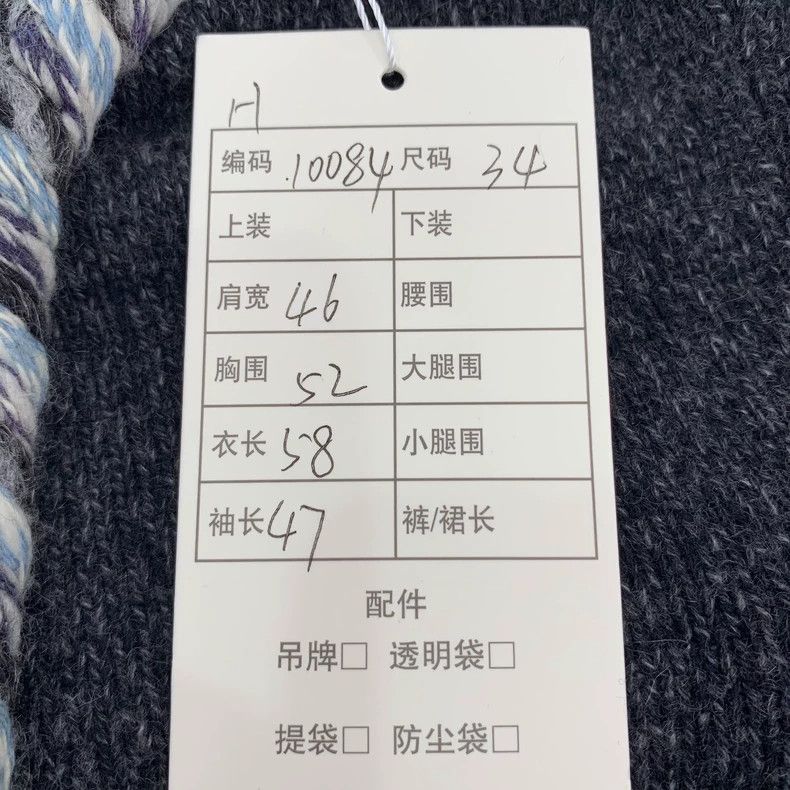 H
编码 10084 尺码 34
上装 下装
肩宽 46 腰围
胸围 52 大腿围
衣长 58 小腿围
袖长 47 裤/裙长
配件
吊牌□ 透明袋□
提袋□ 防尘袋□